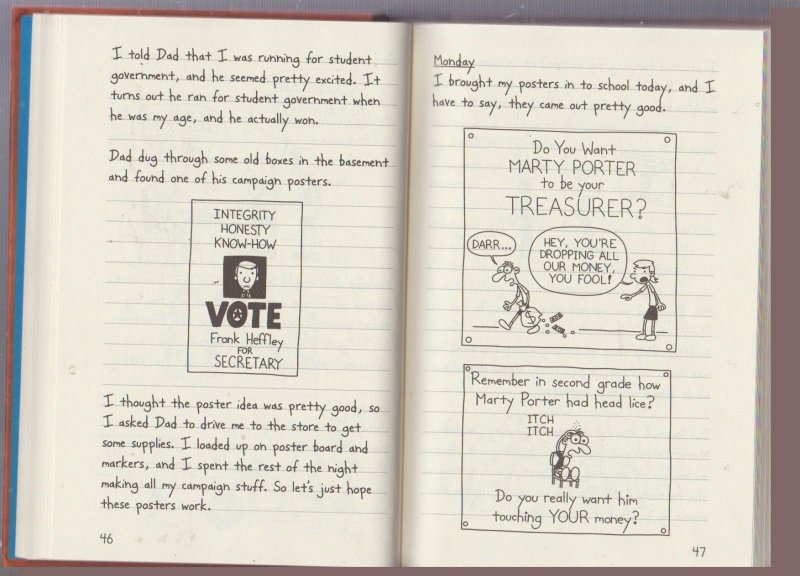 I told Dad that I was running for student
government, and he seemed pretty excited. It
turns out he ran for student government when
he was my age, and he actually won.
Dad dug through some old boxes in the basement
and found one of his campaign posters.
INTEGRITY
HONESTY
KNOW-HOW
VOTE
Frank Heffley
FOR
SECRETARY
I thought the poster idea was pretty good, so
I asked Dad to drive me to the store to get
some supplies. I loaded up on poster board and
markers, and I spent the rest of the night
making all my campaign stuff. So let's just hope
these posters work.
46
Monday
I brought my posters in to school today, and I
have to say, they came out pretty good.
Do You Want
MARTY PORTER
to be your
TREASURER?
DARR...
HEY, YOU'RE
DROPPING ALL
OUR MONEY,
YOU FOOL!
$
Remember in second grade how
Marty Porter had head lice?
ITCH
ITCH
Do you really want him
touching YOUR money?
47